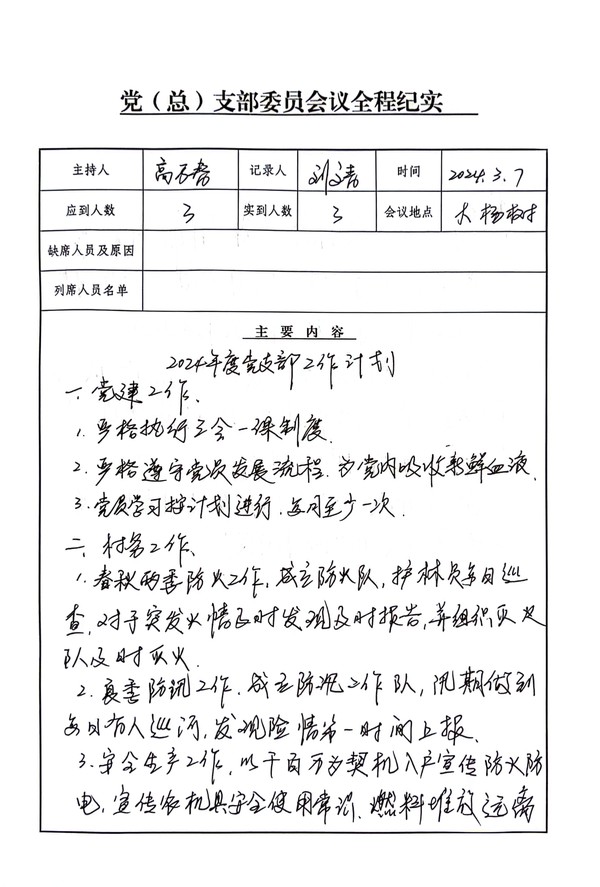 党（总）支部委员会议全程纪实
主持人 高 记录人 刘 时间 2024.3.7
应到人数 3 实到人数 3 会议地点 大杨树
缺席人员及原因
列席人员名单
主要内容
2024年度党支部工作计划
一、党建工作、
1.严格执行三会一课制度.
2.严格遵守党员发展流程.为党内吸收新鲜血液.
3.党员学习按计划进行,每月至少一次.
二、村务工作、
1.春秋两季防火工作,成立防火队,护林员每日巡
查,对于突发火情及时发现及时报告,并组织灭火
队及时灭火.
2.夏季防汛工作.成立防汛工作队,汛期做到
每日有人巡河,发现险情第一时间上报.
3.安全生产工作,以干百万为契机入户宣传防火防
电,宣传农机具安全使用常识.燃料堆放远离